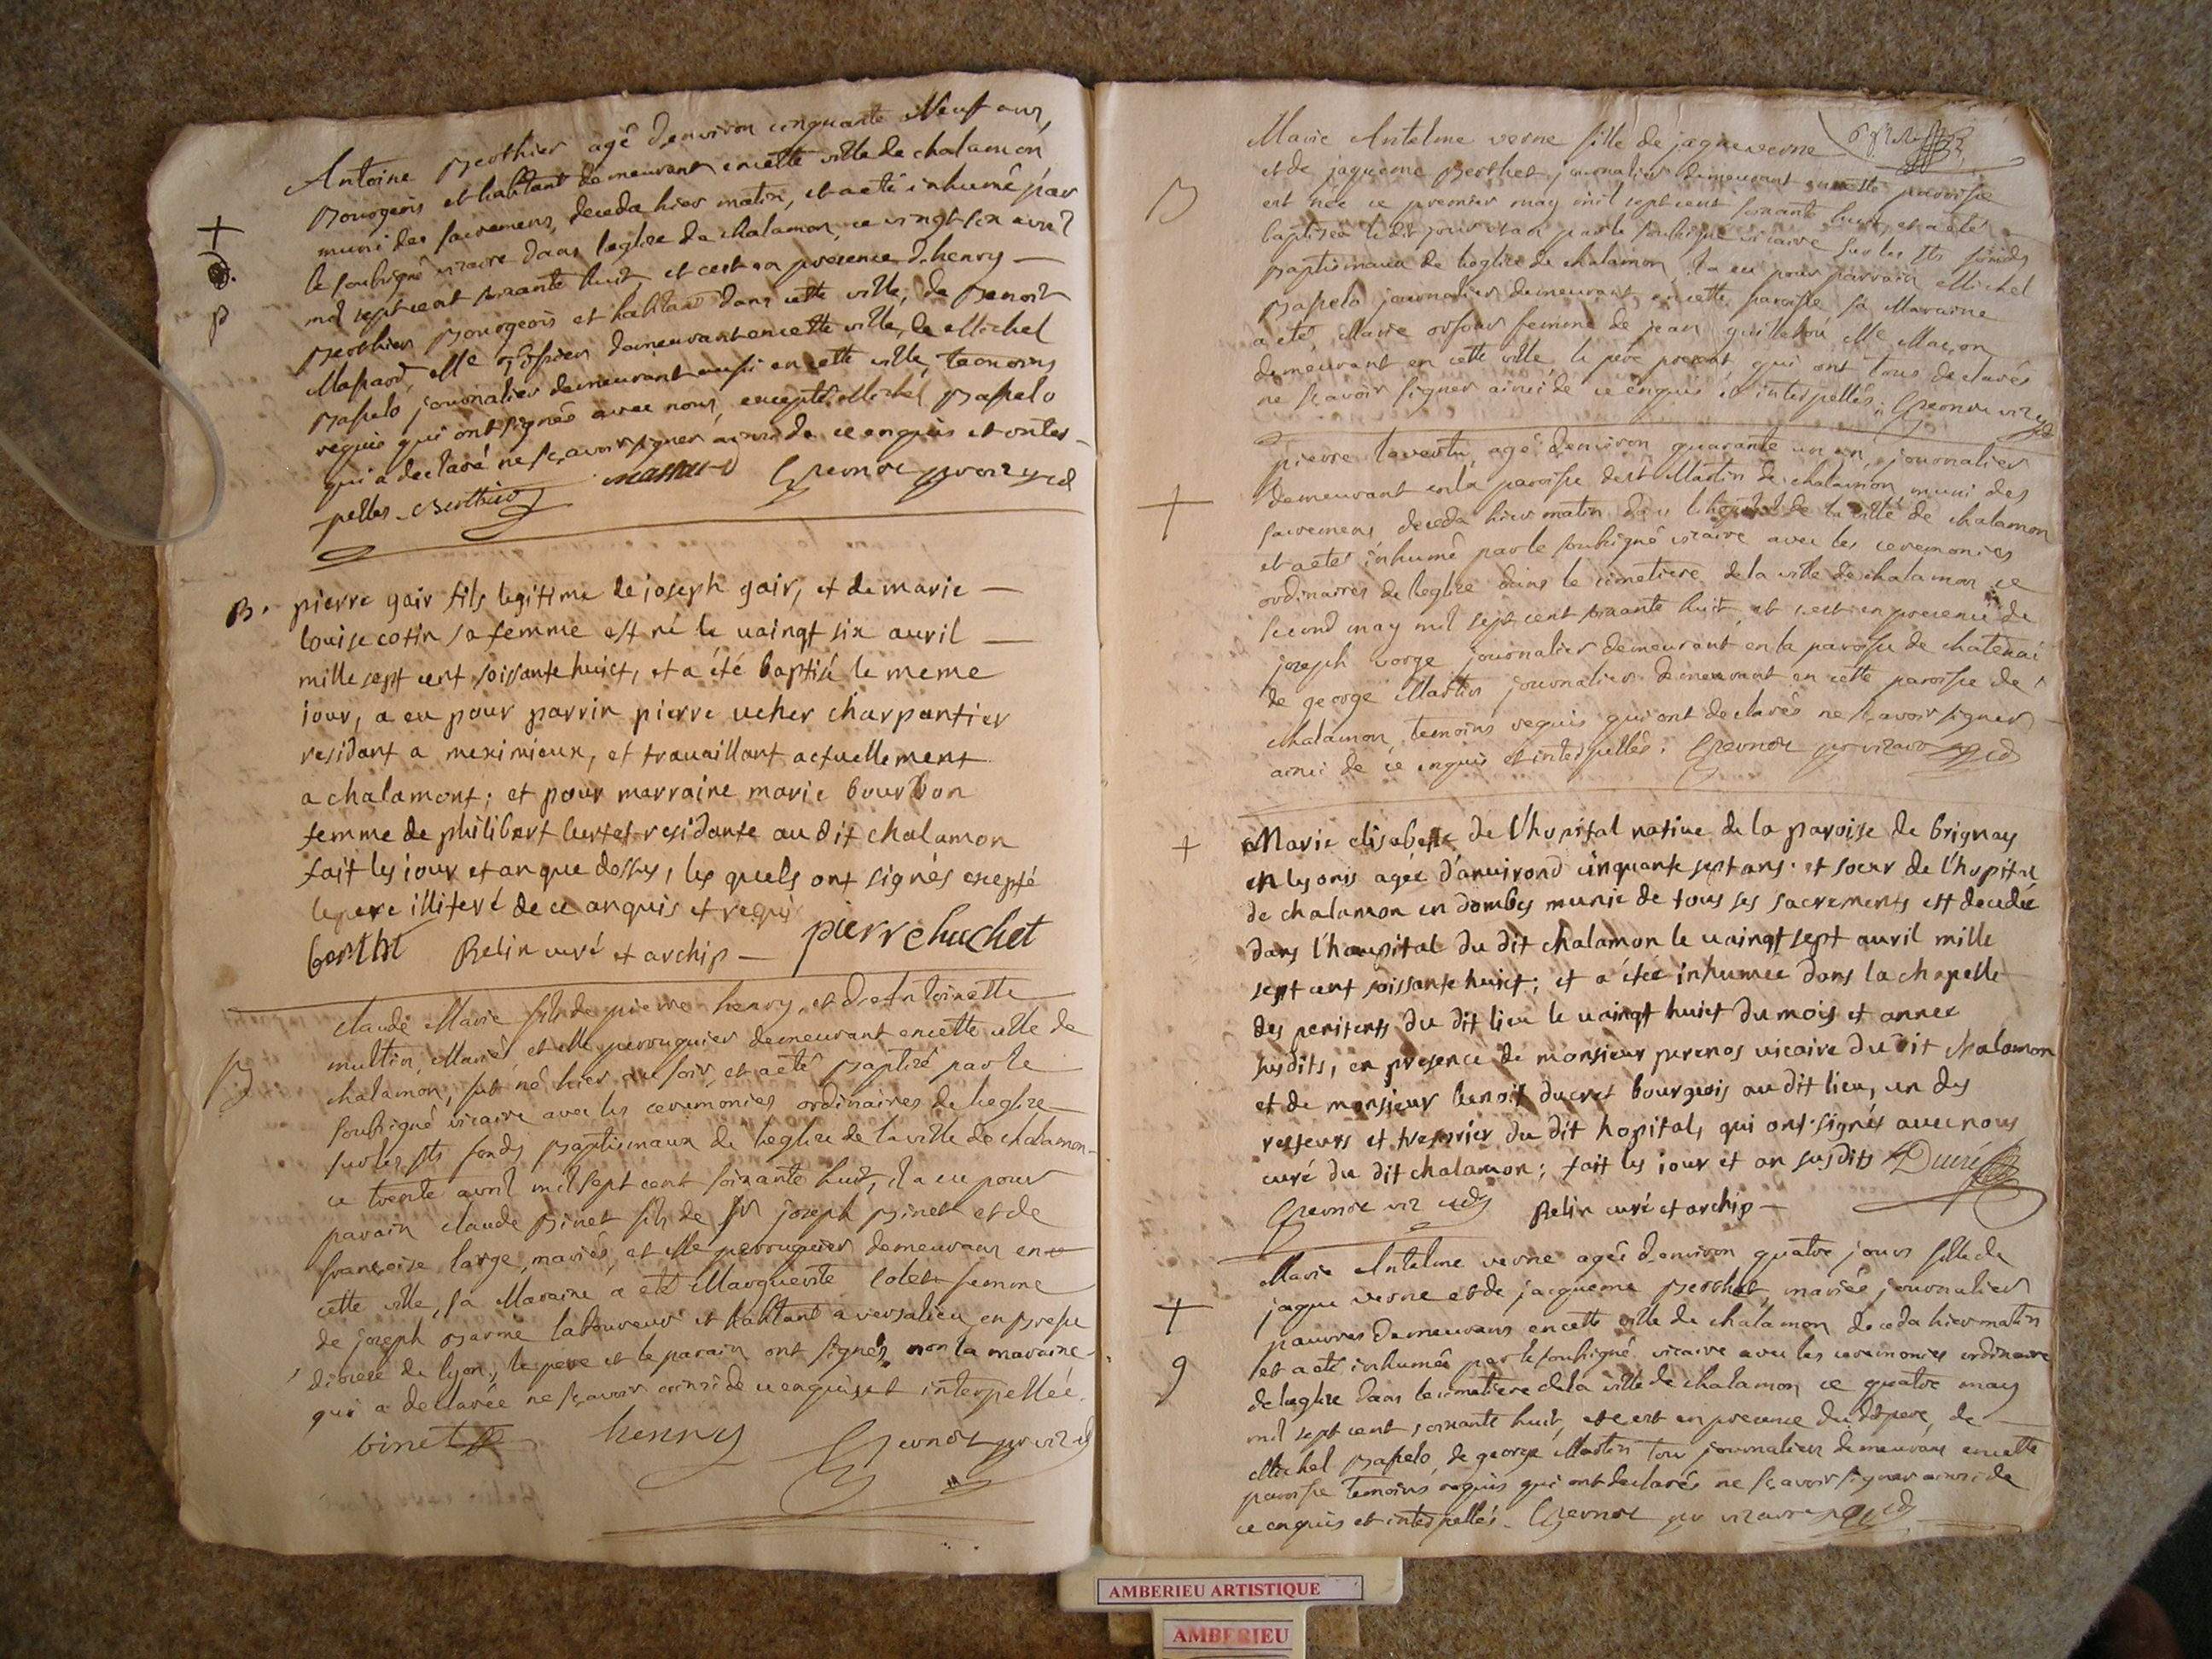 Antoine Berthier agé denviron cinquante Neuf ans,
Bourgeois et habitant demeurant en cette ville de chalamon
muni des sacremens, deceda hier matin, et a eté inhumé par
le soubsigné vicaire dans leglise de chalamon, ce vingt six avril
mil sept cent soixante huit, et cest en presence d'henry
Berthier Bourgeois et habitant dans cette ville, de Benoit
demeurant en cette ville, de Michel
Bapelo journalier demeurant aussi en cette ville, temoins
requis qui ont signés avec nous, excepté Michel Bapelo
qui a declaré ne sçavoir signer ainsi de ce enquis et inter-
pellés. Berthier
B. pierre gair fils legitime de joseph gair, et de marie
louise cotin sa femme est né le vaingt six auril
mille sept cent soissante huict, et a été baptisé le meme
iour, a eu pour parrin pierre ucher charpantier
residant a meximieux, et travaillant actuellement
a chalamont; et pour marraine marie bourbon
femme de philibert residante au dit chalamon
fait les iour et an que dessus, les quels ont signés excepté
le pere illiteré de ce anquis et requis
Belin curé et archip pierre huchet
B claude Marie fils de pierre henry, et d'Antoinette
multin, Mariés, et Me perruquier demeurant en cette ville de
chalamon, fut né hier au soir, et a eté Baptisé par le
soubsigné vicaire avec les ceremonies ordinaires de leglise
sur les sts fonds Baptismaux de leglise de la ville de chalamon
ce trente avril mil sept cent soixante huit, il a eu pour
parain claude Binet fils de joseph Binet et de
françoise large, mariés, et Me perruquier demeurans en
cette ville, sa Maraine a eté Marguerite Colet femme
de joseph Barme laboureur et habitant a versalieu en Bresse
diocese de lyon, le pere et le parain ont signés, non la maraine
qui a declarée ne sçavoir ainsi de ce enquise et interpellée.
binet henry
Marie Antelme verne fille de jaque verne
et de jaqueme Berthet journalier demeurant en cette paroisse
B est née ce premier may mil sept cent soixante huit, et a eté
baptisée le dit jour et an par le soubsigné vicaire sur les sts fonds
Baptismaux de leglise de chalamon, la eu pour parrain Michel
Bapelo journalier demeurant en cette paroisse sa Maraine
a eté, Marie femme de jean Me Maçon
demeurant en cette ville, le père present, qui ont tous declarés
ne sçavoir signer ainsi de ce enquis et interpellés.
pierre lavertu, agé denviron quarante un an, journalier
demeurant en la paroisse de st Martin de chalamon, muni des
sacremens, deceda hier matin dans lhopital de la ville de chalamon
et a eté inhumé par le soubsigné vicaire avec les ceremonies
ordinaires de leglise dans le cimetiere de la ville de chalamon ce
second may mil sept cent soixante huit, et cest en presence de
joseph vorge journalier demeurant en la paroisse de chatenai
de george Martin journalier demeurant en cette paroisse de
chalamon, temoins requis qui ont declarés ne sçavoir signer
ainsi de ce enquis et interpellés.
Marie elisabette de l'hopital native de la paroise de brignay
en lyonis agée d'anvirond cinquante sept ans. et soeur de l'hopital
de chalamon en dombes munie de tous ses sacrements est decedée
dans l'haupital du dit chalamon le vaingt sept auril mille
sept cent soissante huict; et a étée inhumee dans la chapelle
des penitents du dit lieu le vaingt huict du mois et annee
susdits, en presence de monsieur pernos vicaire du dit chalamon
et de monsieur benoit ducret bourgeois au dit lieu, un des
recteurs et tresorier du dit hopital, qui ont signés avec nous
curé du dit chalamon; fait les iour et an susdits Ducret
Belin curé et archip
Marie Antelme verne agée denviron quatre jours fille de
jaque verne et de jaqueme Berthet, mariés journaliers
pauvres demeurans en cette ville de chalamon deceda hier matin
et a eté inhumée par le soubsigné vicaire avec les ceremonies ordinaire
de leglise dans le cimetiere de la ville de chalamon ce quatre may
mil sept cent soixante huit, et cest en presence du dit pere, de
Michel Bapelo, de george Martin tous journaliers demeurans en cette
paroisse temoins requis qui ont declarés ne sçavoir signer ainsi de
ce enquis et interpellés.
AMBERIEU ARTISTIQUE
AMBERIEU